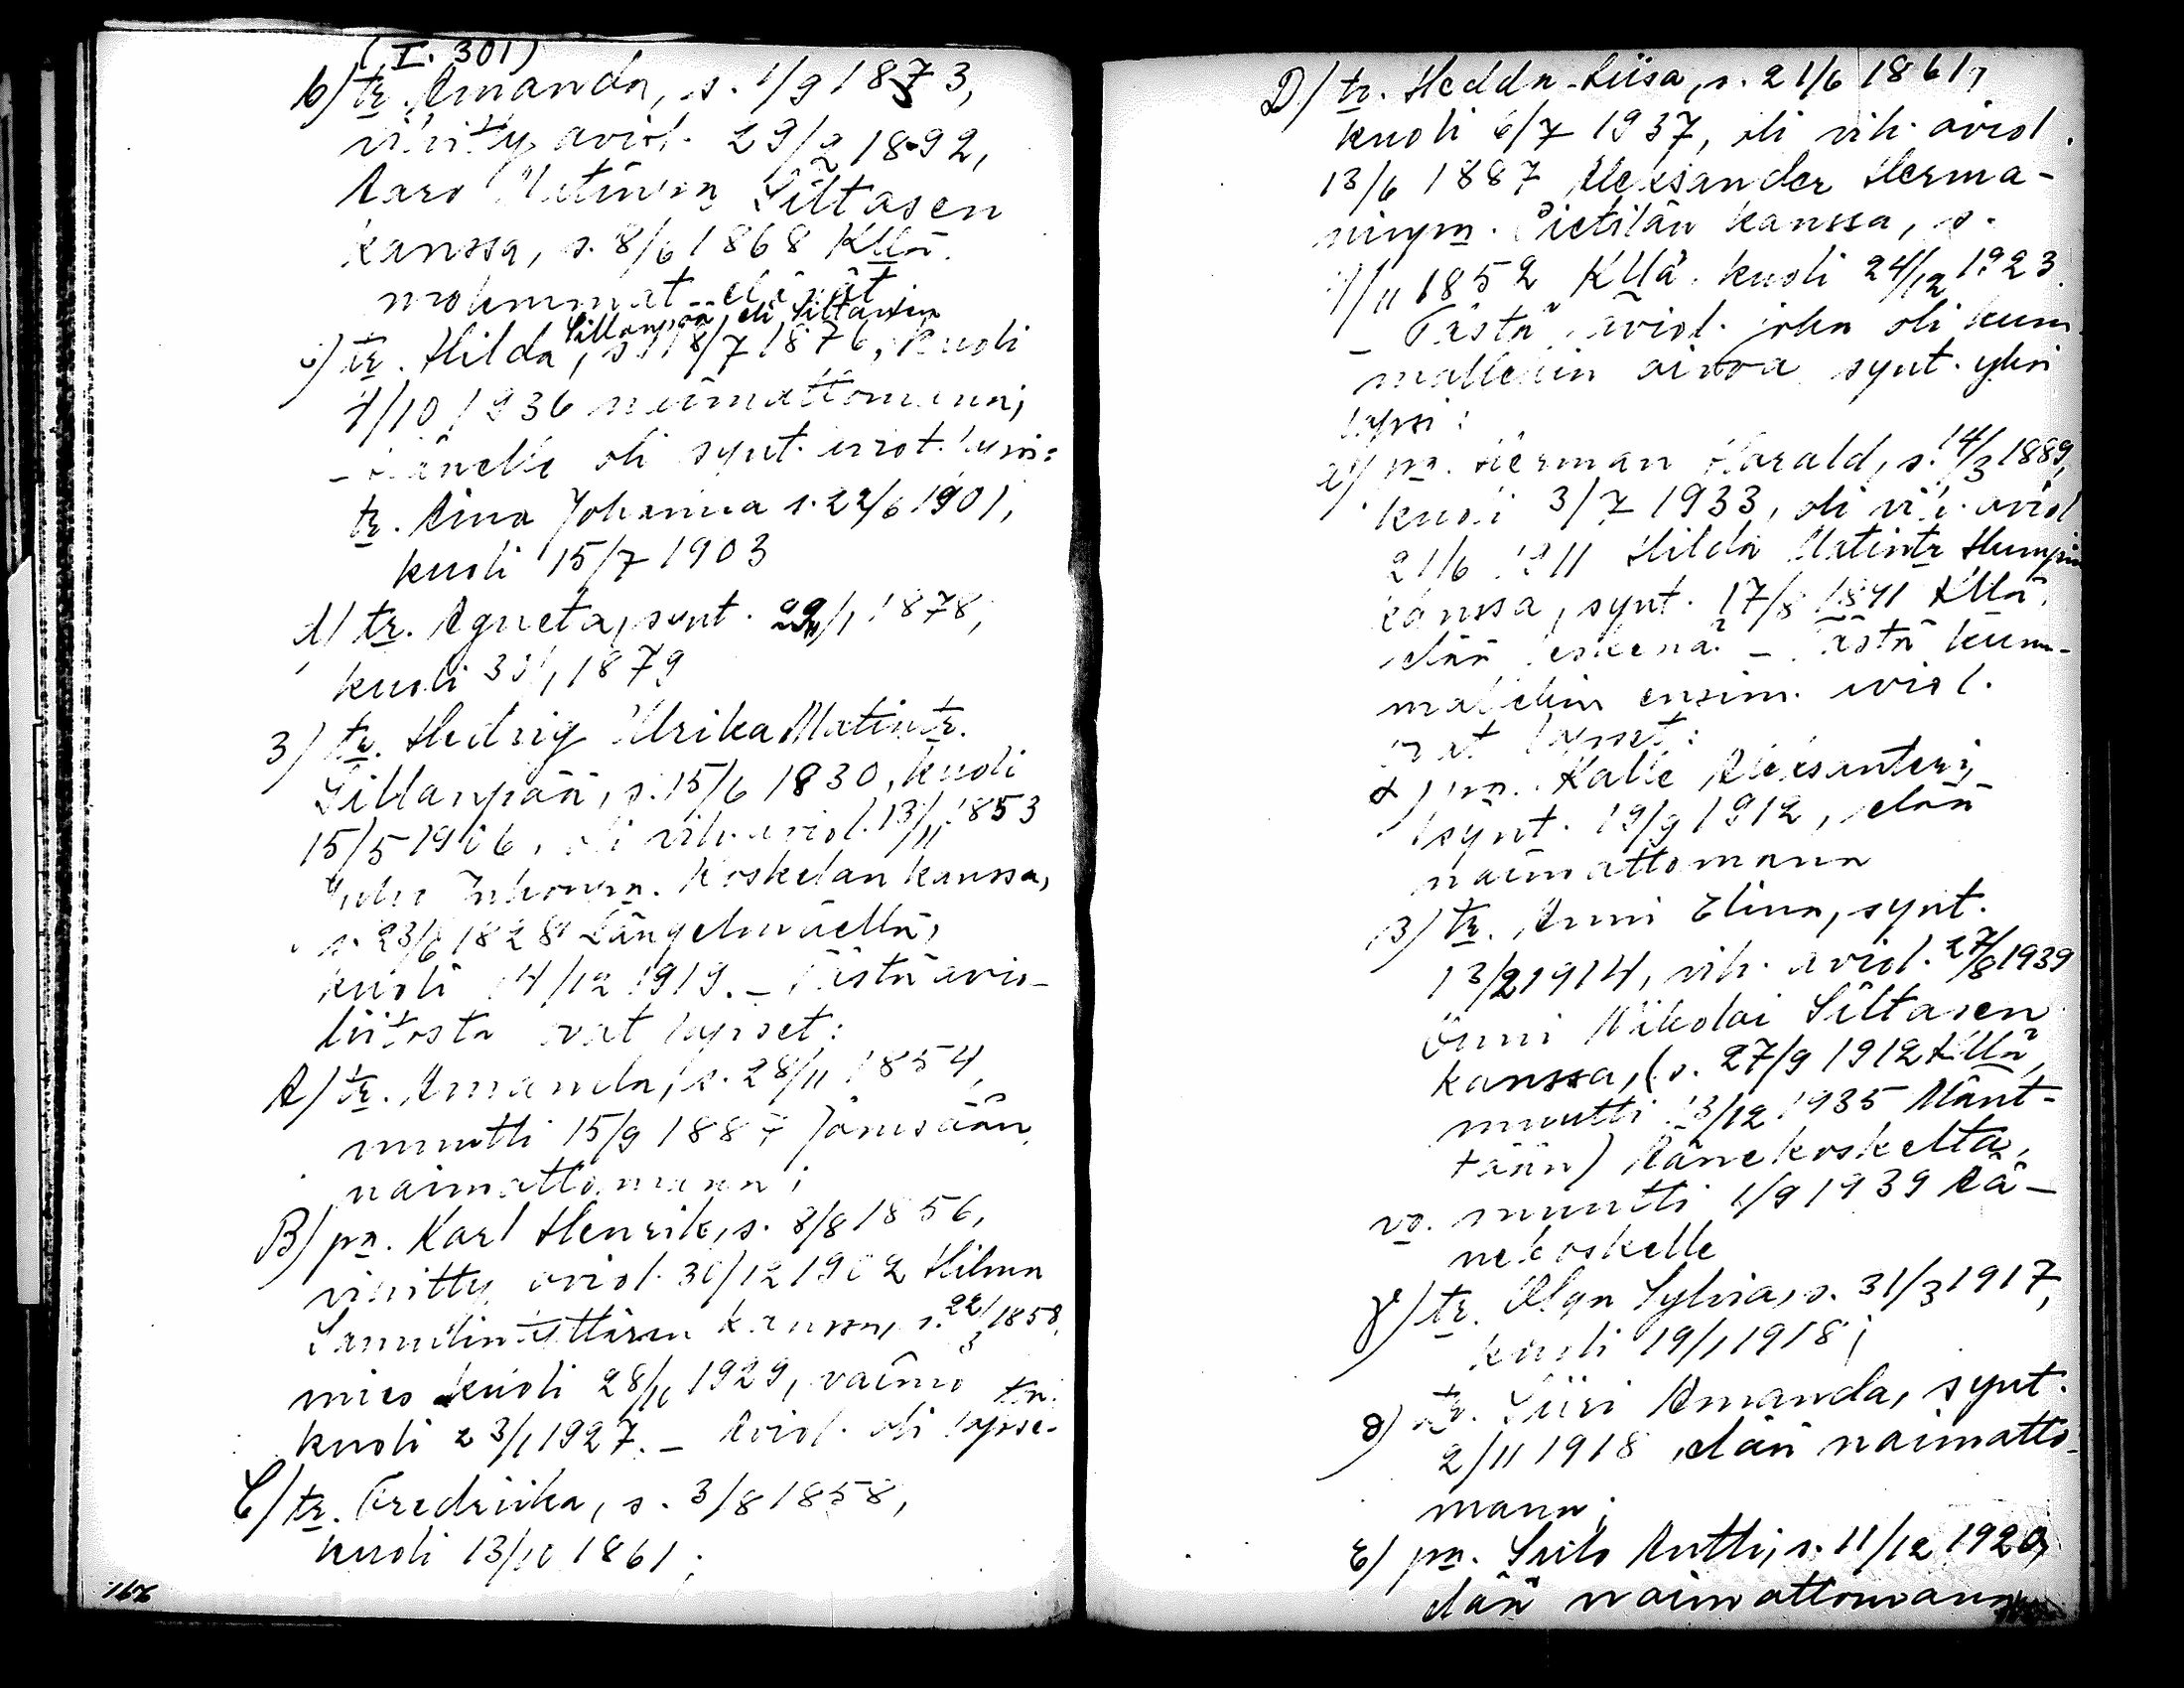 (I. 301)
b) tr. Amanda, s. 1/9 1873,
vihitty aviol. 29/9 1892,
Aaro Matinpn Siltasen
kanssa, s. 8/6 1868 Kllä.
molemmat elävät
Sillanpää eli Siltanen
c) tr. Hilda, s. 18/7 1876, kuoli
4/10 1936 naimattomana,
- hänelle oli synt. aviot. lapsi:
tr. Aina Johanna s. 22/6 1901,
kuoli 15/7 1903
d) tr. Agneta, synt. /1 1878,
kuoli /1 1879
3) tr. Hedvig Ulrika Matintr.
Sillanpää, s. 15/6 1830, kuoli
15/5 1906, oli vih. aviol. 13/11 1853
Juho Juhonpn. Koskelan kanssa,
s. 23/6 1828 Längelmäellä,
kuoli 14/12 1919. - Tästä avio-
liitosta ovat lapset:
A) tr. Amanda, s. 28/11 1854,
muutti 15/9 1887 Jämsään
naimattomana;
B) pn. Karl Henrik, s. 8/8 1856,
vihitty aviol. 30/12 1902 Hilma
Samulintyttären kanssa, s. 22/3 1858,
mies kuoli 28/11 1929, vaimo
kuoli 23/1 1927. - Aviol. oli lapse-
tn.
C) tr. Fredriika, s. 3/8 1858,
kuoli 13/10 1861;
D) tr. Hedda-Liisa, s. 21/6 1861,
kuoli 6/7 1937, oli vih. aviol.
13/6 1887 Aleksander Herma-
ninpn. Pietilän kanssa, s.
/11 1852 Kllä. kuoli 24/12 1923.
- Tästä aviol. joka oli kum-
mallekin ainoa synt. yksi
lapsi:
a) pn. Herman Harald, s. 14/3 1889,
kuoli 3/7 1933, oli vih. aviol.
21/6 1911 Hilda Matintr
kanssa, synt. 17/8 1891 Kllä,
elää leskenä. - Tästä kum-
mallekin ensim. aviol.
ovat lapset:
α) pn. Kalle Aleksanteri,
synt. 19/9 1912, elää
naimattomana
β) tr. Anni Elina, synt.
13/2 1914, vih. aviol. 27/8 1939
Onni Nikolai Siltasen
kanssa, (s. 27/9 1912 Kllä,
muutti 13/12 1935 Mänt-
tään) Äänekoskelta,
vo. muutti 1/9 1939 Ää-
nekoskelle
γ) tr. Olga Sylvia, s. 31/3 1917,
kuoli 19/1 1918;
δ) tr. Siiri Amanda, synt.
2/11 1918 elää naimatto-
mana;
ε) pn. Sulo Antti, s. 11/12 1920,
elää naimattomana